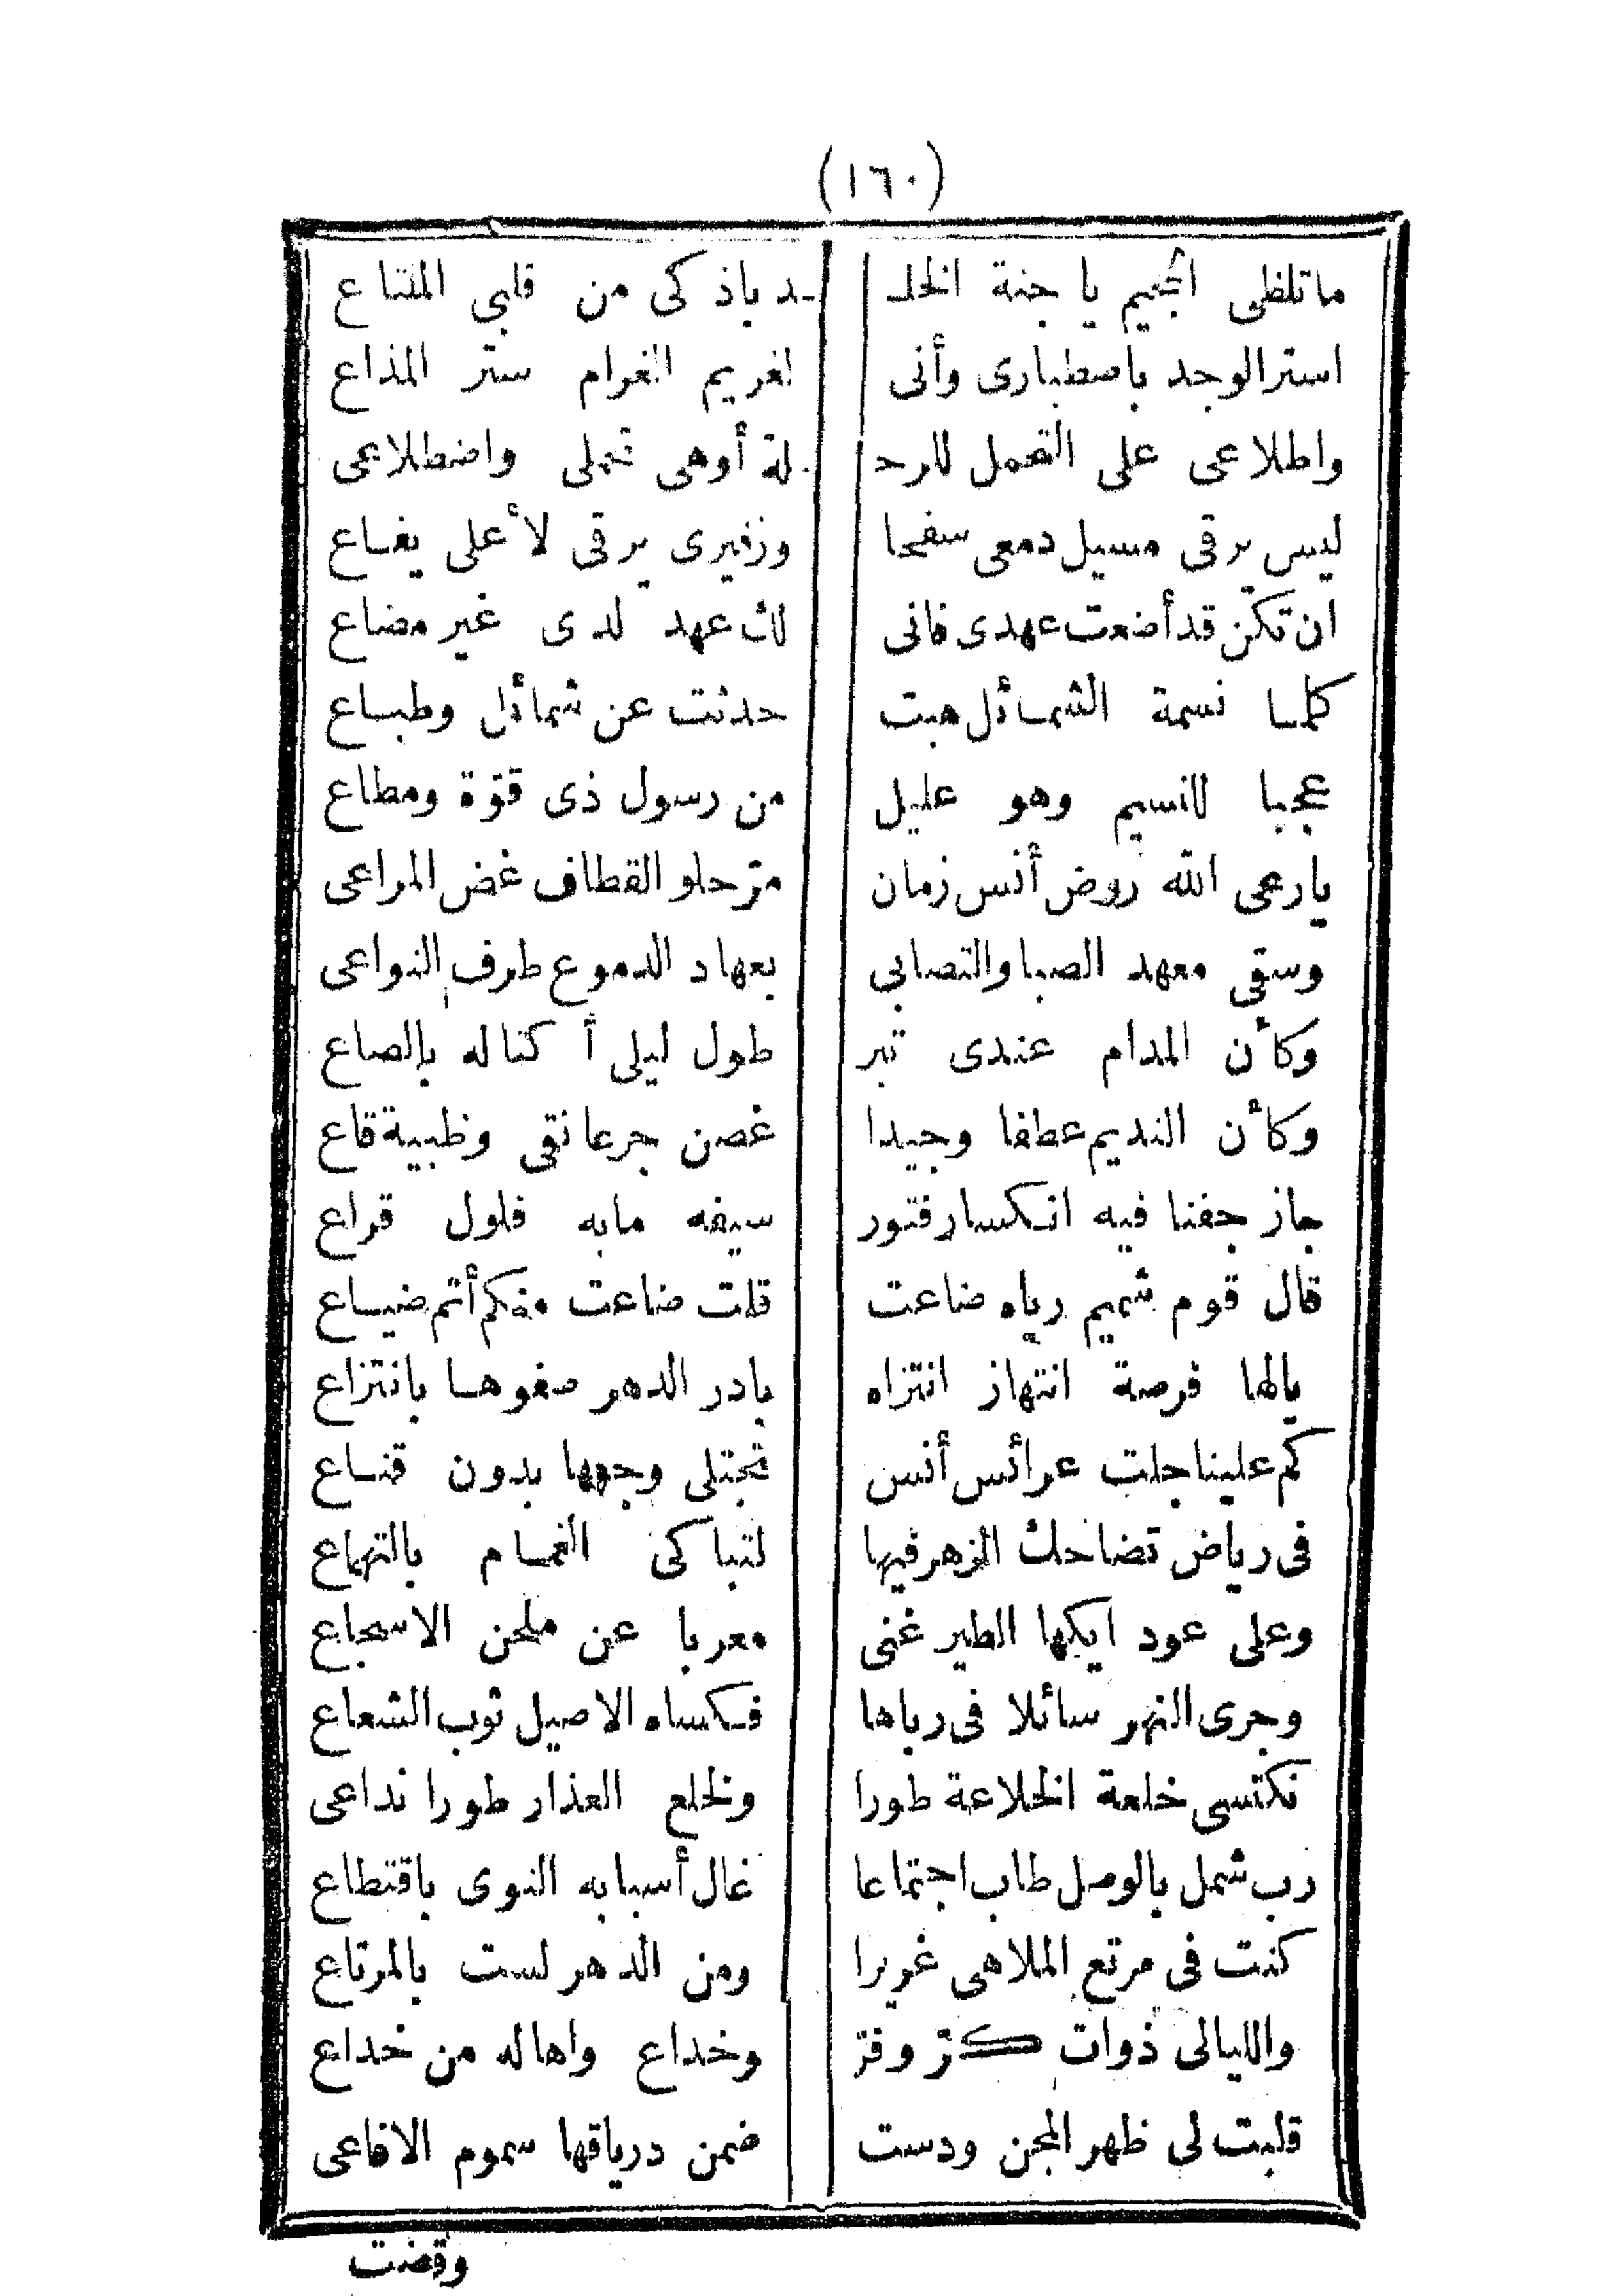 (١٦٠)
ماتلظى الجحيم يا جنة الخلـ ـد باذكى من قلبى الملتاع
استر الوجد باصطبارى وأنى لغريم الغرام ستر المذاع
واطلاعى على التحمل للرحـ ـلة أوهى تحملى واضطلاعى
ليس يرقى مسيل دمعى سفحا وزفيرى يرقى لأعلى يفاع
ان تكن قد أضعت عهدى فانى لك عهد لدى غير مضاع
كلما نسمة الشمائل هبت حدثت عن شمائل وطباع
عجبا للنسيم وهو عليل من رسول ذى قوّة ومطاع
يارعى الله روض أنس زمان مرّ حلو القطاف غض المراعى
وسقى معهد الصبا والتصابى بعهاد الدموع طرف النواعى
وكأن المدام عندى تبر طول ليلى أكتاله بالصاع
وكأن النديم عطفا وجيدا غصن جرعا نقى وظبية قاع
جاز جفنا فيه انكسار فتور سيفه مابه فلول قراع
قال قوم شميم رياه ضاعت قلت ضاعت منكم أتم ضياع
يالها فرصة انتهاز انتزاه بادر الدهر صفوها بانتزاع
كم علينا جلت عرائس أنس تجتلى وجهها بدون قناع
فى رياض تضاحك الزهر فيها لتباكى الغمام بالتهماع
وعلى عود ايكها الطير غنى معربا عن ملحن الاسجاع
وجرى النهر سائلا فى رباها فكساه الاصيل ثوب الشعاع
نكتسى خلعة الخلاعة طورا ولخلع العذار طورا نداعى
رب شمل بالوصل طاب اجتماعا غال أسبابه النوى باقتطاع
كنت فى مرتع الملاهى غريرا ومن الدهر لست بالمرتاع
والليالى ذوات كرّ وفرّ وخداع واهاله من خداع
قلبت لى ظهر المجن ودست ضمن درياقها سموم الافاعى
وقضت